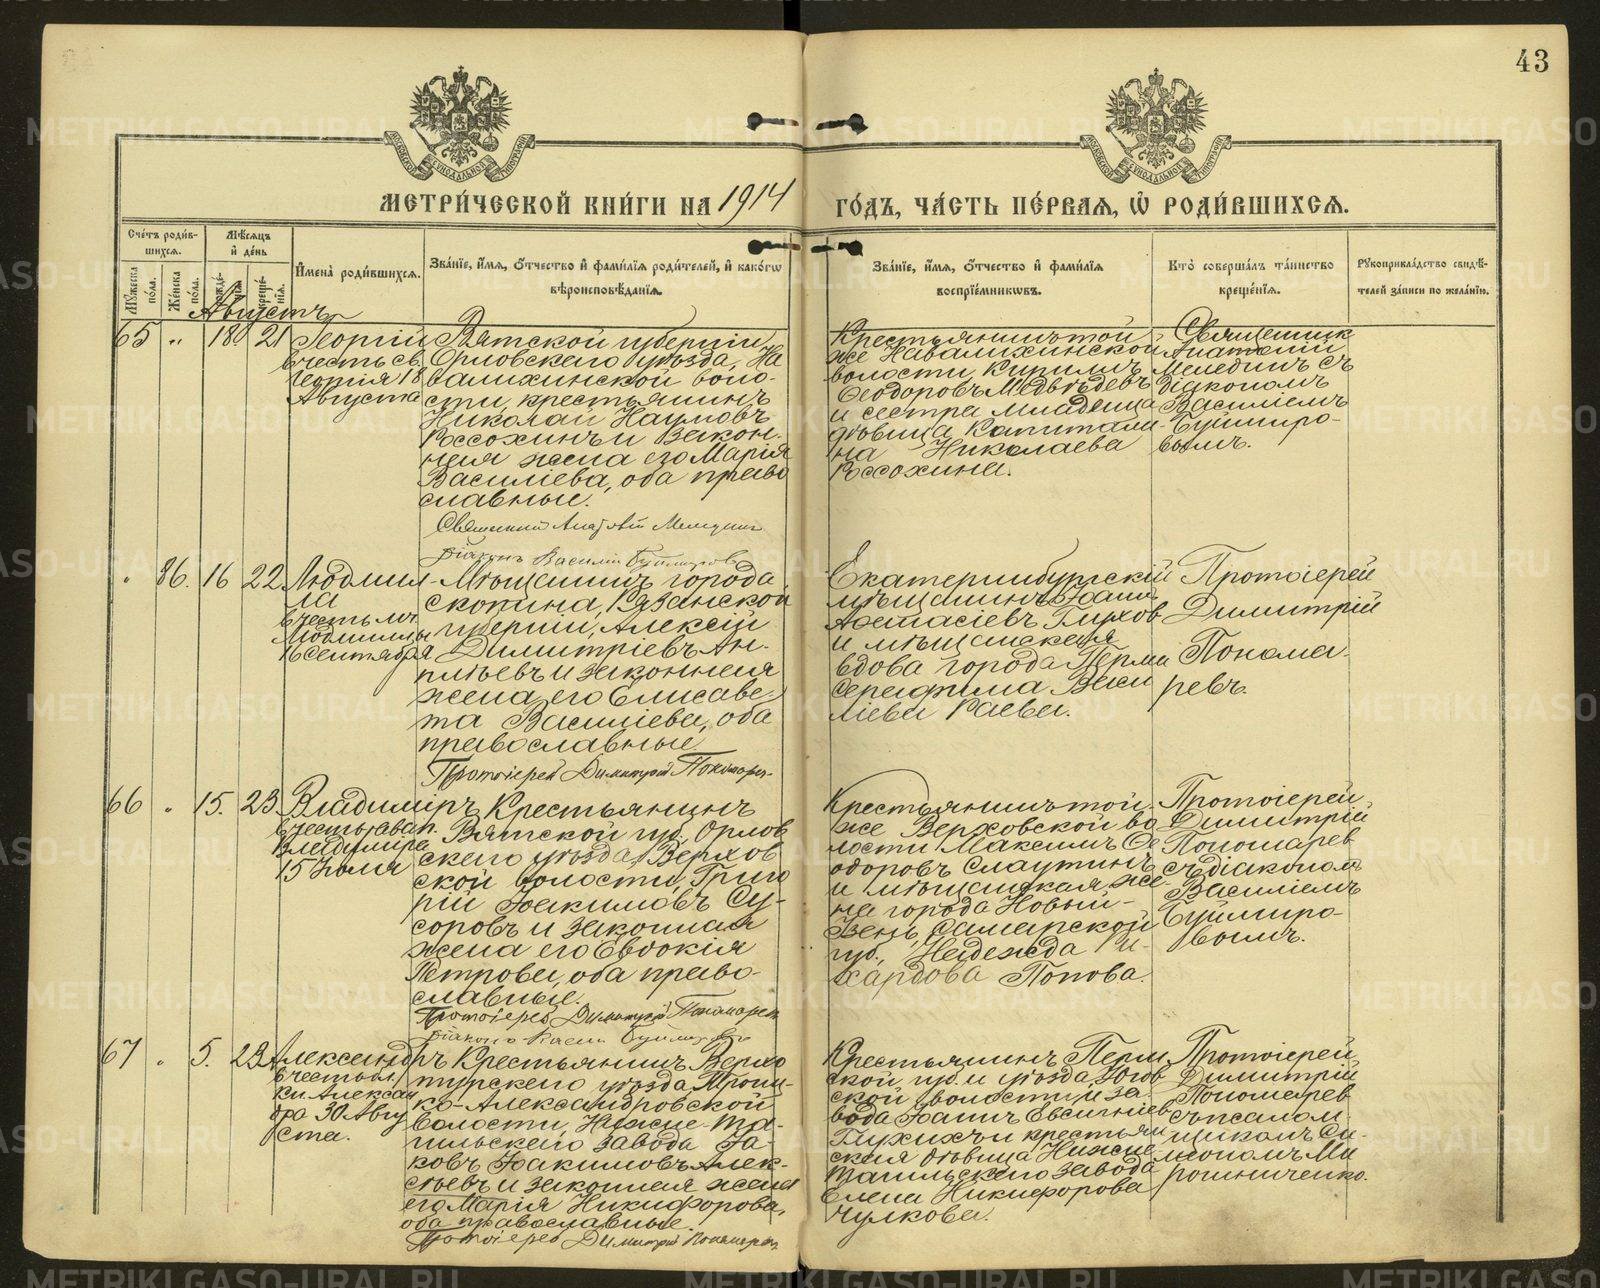 43
МЕТРИ́ЧЕСКОЙ КНИ́ГИ НА 1914
ГО́ДЪ, ЧА́СТЬ ПЕ́РВАЯ, Ѡ҆ РОДИ́ВШИХСЯ.
Сче́тъ роди́в-
шихся.
Мѣ́сяцъ
и҆ де́нь
Мꙋ́жеска по́ла.
Же́нска по́ла.
рожде́нія
креще́нія.
И҆мена̀ роди́вшихся.
Зва́нїе, и҆́мя, ѻ҆́тчество и҆ фами́лїя роди́телей, и҆ како́гѡ
вѣроисповѣ́данїя.
Зва́нїе, и҆́мя, ѻ҆́тчество и҆ фами́лїя
воспрїе́мникѡвъ.
Кто̀ соверша́лъ та́инство
креще́нїя.
Рꙋкоприкла́дство свидѣ́-
телей за́писи по жела́нїю.
Августъ
65 " 18 21
Георгій
въ честь св.
Георгія 18
Августа
Вятской губерніи,
Орловскаго уѣзда, На
валихинской воло-
сти, крестьянинъ
Николай Наумовъ
Россохинъ и закон-
ная жена его Марія
Василіева, оба право
славные.
Священникъ Анатолій Меледин
Діаконъ Василій Буймировъ
Крестьянинъ той
же Навалихинской
волости, Кириллъ
Ѳеодоровъ Медвѣдевъ
и сестра младенца
дѣвица Капитали-
на Николаева
Россохина.
Священник
Анатолій
Меледин съ
діакономъ
Василіемъ
Буймиро-
вымъ.
" 86. 16 22
Людмил
ла
въ честь мч.
Людмиллы
16 сентября
Мѣщанинъ города
Скопина, Рязанской
губерніи, Алексій
Димитріевъ Ан-
пльевъ и законная
жена его Елисаве-
та Василіева, оба
православные.
Протоіерей Димитрій Пономарев
Екатеринбургскій
мѣщанинъ Іоанн
Аѳанасіевъ Глухов
и мѣщанская
вдова города Перми
Серафима Васи
ліева Раева.
Протоіерей
Димитрій
Понома-
ревъ.
66 " 15. 23
Владиміръ
въ честь равап.
Владиміра
15 Іюля
Крестьянинъ
Вятской губ. Орлов
скаго уѣзда, Верхов
ской волости, Григо
рій Іоакимовъ Су-
соровъ и законная
жена его Евдокія
Петрова, оба право-
славные.
Протоіерей Димитрій Пономарев
Діаконъ Васил Буймировъ
Крестьянинъ той-
же Верховской во
лости Максимъ Ѳе
одоровъ Слаутинъ
и мѣщанская же-
на города Новый-
Узень, Самарской
губ., Надежда Ри-
хардова Попова.
Протоіерей
Димитрій
Пономарев
съ діаконом
Василіемъ
Буймиро-
вымъ.
67 " 5. 23
Александръ
въ честь бл.
кн. Алексан
дра 30 Авгу
ста.
Крестьянинъ Верхо
турскаго уѣзда, Трои-
ко-Александровской
волости, Нижне-Та-
гильскаго завода Іа-
ковъ Іоакимовъ Алек-
сѣевъ и законная жена
его Марія Никифорова,
оба православные.
Протоіерей Димитрій Пономарев
Крестьянинъ Перм
ской губ. и уѣзда Югов
ской волости и за-
вода Іоаннъ Евсигніев
Глухихъ и крестьян
ская дѣвица Нижне
Тагильскаго завода
Елена Никифорова
Чулкова.
Протоіерей
Димитрій
Пономарев
съ псалом-
щикомъ Си-
меономъ Ми
рошниченко.